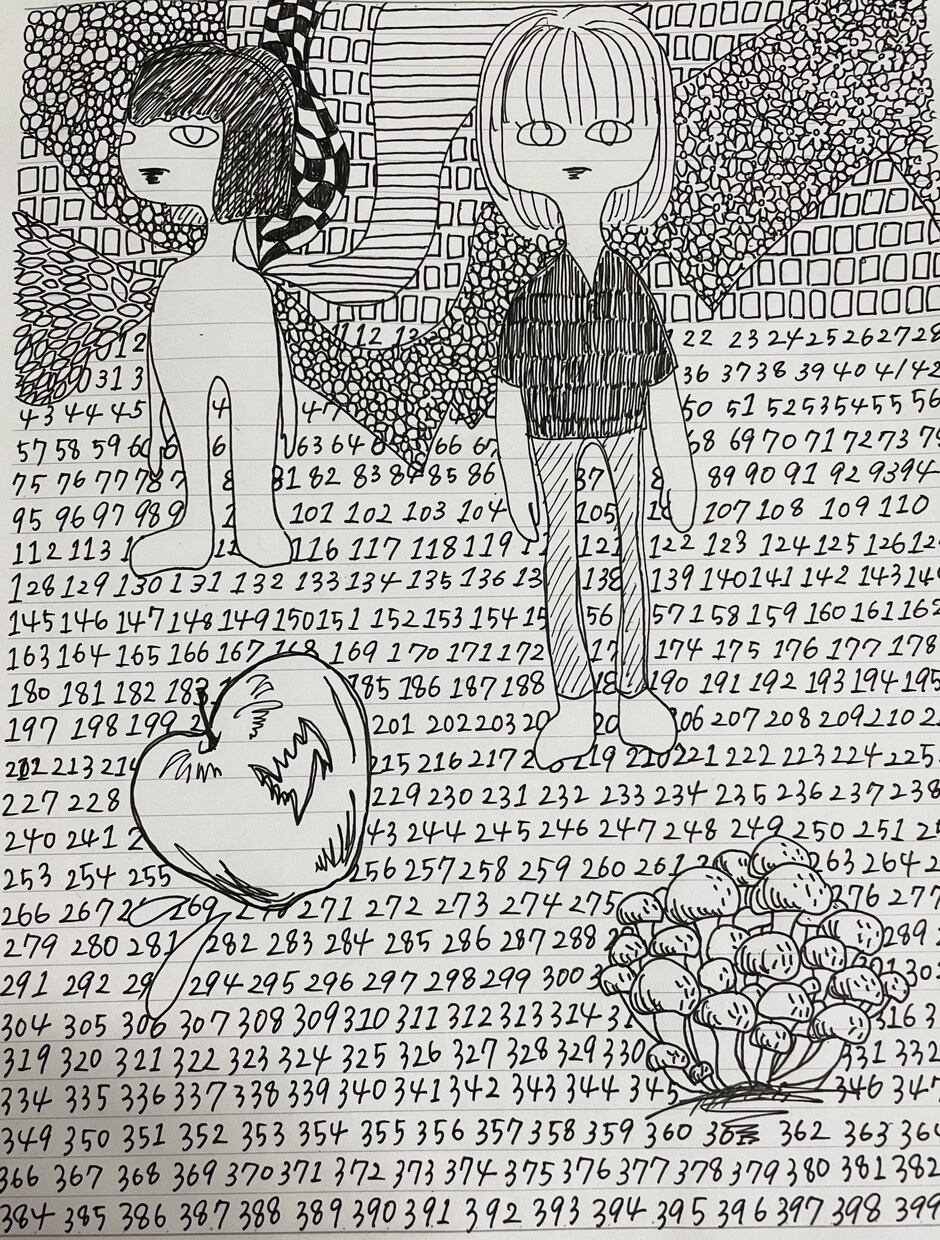 012 11 12 13 22 23 24 25 26 27 28
031 3 36 37 38 39 40 41 42
43 44 45 4 47 50 51 52 53 54 55 56
57 58 59 60 6 6 63 64 6 66 67 68 69 70 71 72 73 79
75 76 77 78 7 8 81 82 83 84 85 86 87 8 89 90 91 92 93 94
95 96 97 98 9 1 101 102 103 104 105 10 107 108 109 110
112 113 1 11 116 117 118 119 1 121 122 123 124 125 126 12
128 129 130 131 132 133 134 135 136 13 138 139 140 141 142 143 144
145 146 147 148 149 150 151 152 153 154 15 56 57 158 159 160 161 162
163 164 165 166 167 168 169 170 171 172 17 174 175 176 177 178
180 181 182 183 185 186 187 188 18 190 191 192 193 194 195
197 198 199 2 201 202 203 20 20 206 207 208 209 210 2
212 213 214 215 216 217 2 219 220 221 222 223 224 225
227 228 229 230 231 232 233 234 235 236 237 238
240 241 2 43 244 245 246 247 248 249 250 251 2
253 254 255 256 257 258 259 260 261 2 263 264 2
266 267 2 269 270 271 272 273 274 275 276 277
279 280 281 282 283 284 285 286 287 288 2 289
291 292 29 294 295 296 297 298 299 300 3 30
304 305 306 307 308 309 310 311 312 313 314 31 316 3
319 320 321 322 323 324 325 326 327 328 329 330 331 332
334 335 336 337 338 339 340 341 342 343 344 345 346 347
349 350 351 352 353 354 355 356 357 358 359 360 36 362 363 364
366 367 368 369 370 371 372 373 374 375 376 377 378 379 380 381 382
384 385 386 387 388 389 390 391 392 393 394 395 396 397 398 399